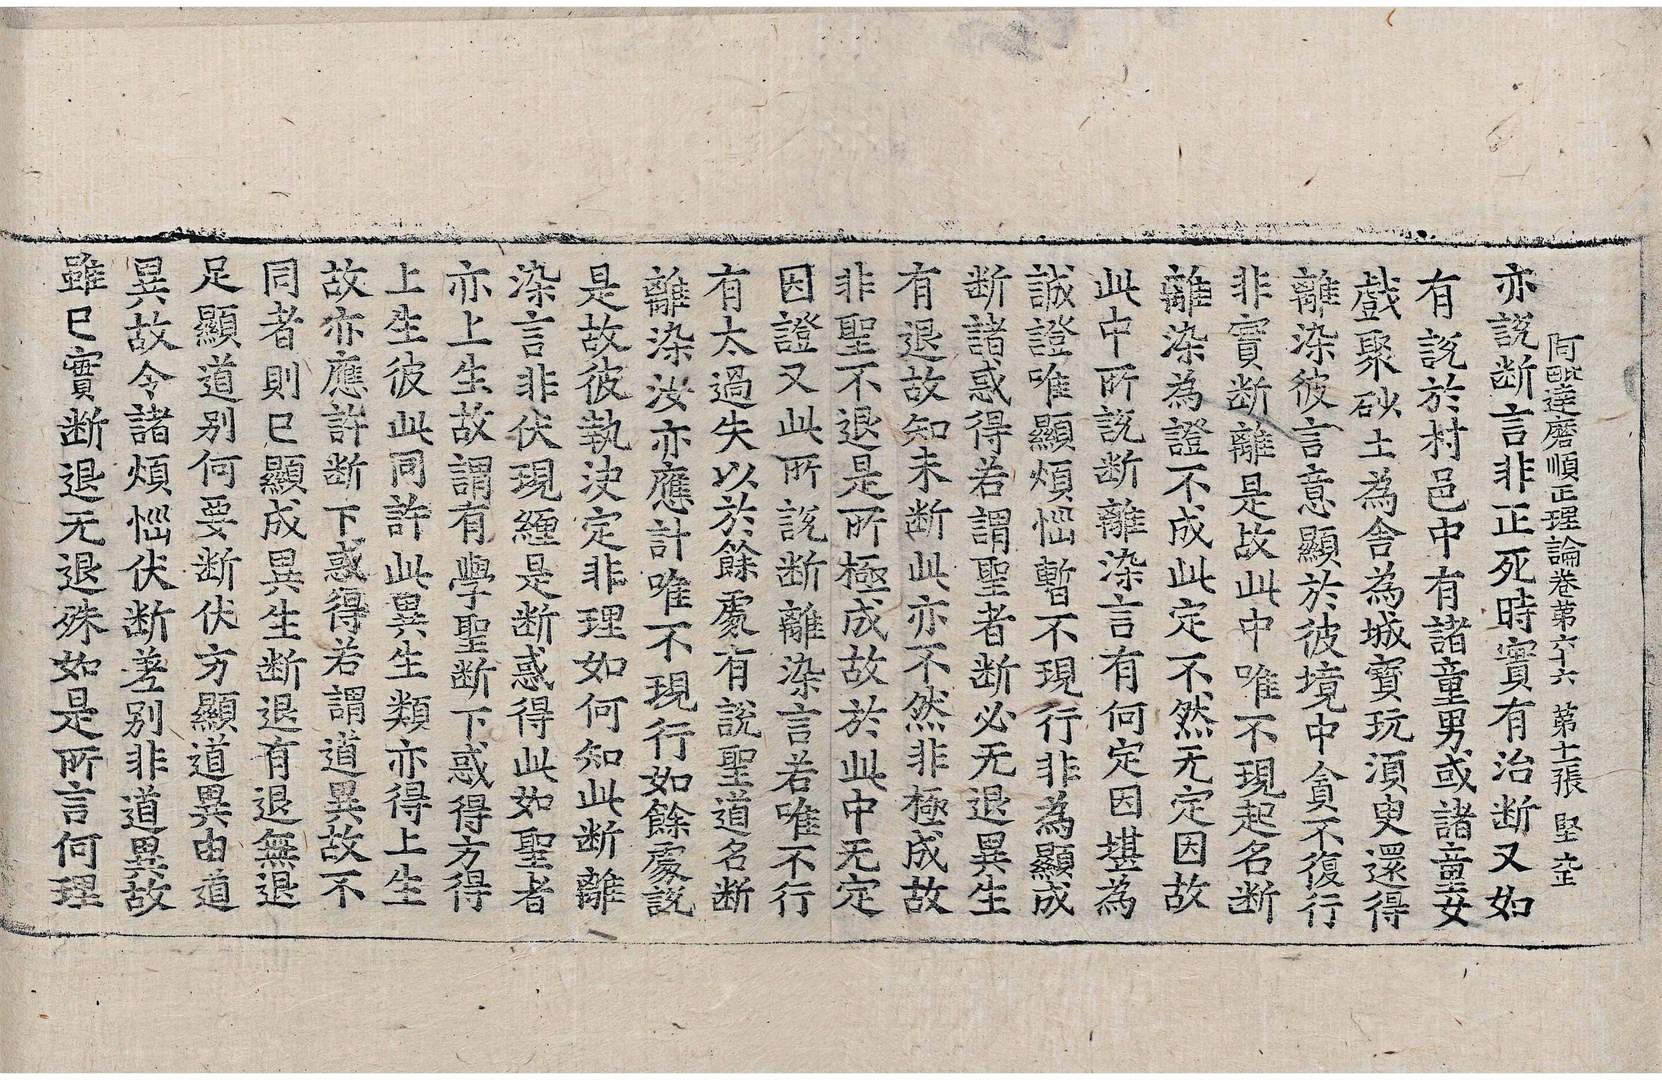 阿毗達磨順正理論卷第六十六 第十二張 堅
亦說断言非正死時實有治断又如
有說於村邑中有諸童男或諸童女
戲聚砂土為舍為城寶玩湏臾還得
離染彼言意顯於彼境中貪不復行
非實断離是故此中唯不現起名断
離染為證不成此定不然无定因故
此中所說断離染言有何定因堪為
誠證唯顯煩惱暫不現行非為顯成
断諸惑得若謂聖者断必无退異生
有退故知未断此亦不然非極成故
非聖不退是所極成故於此中无定
因證又此所說断離染言若唯不行
有太過失以於餘處有說聖道名断
離染汝亦應計唯不現行如餘處說
是故彼執決定非理如何知此断離
染言非伏現纏是断惑得此如聖者
亦上生故謂有學聖断下惑得方得
上生彼此同許此異生類亦得上生
故亦應許断下惑得若謂道異故不
同者則已顯成異生断退有退無退
足顯道別何要断伏方顯道異由道
異故令諸煩惱伏断差別非道異故
雖已實断退无退殊如是所言何理